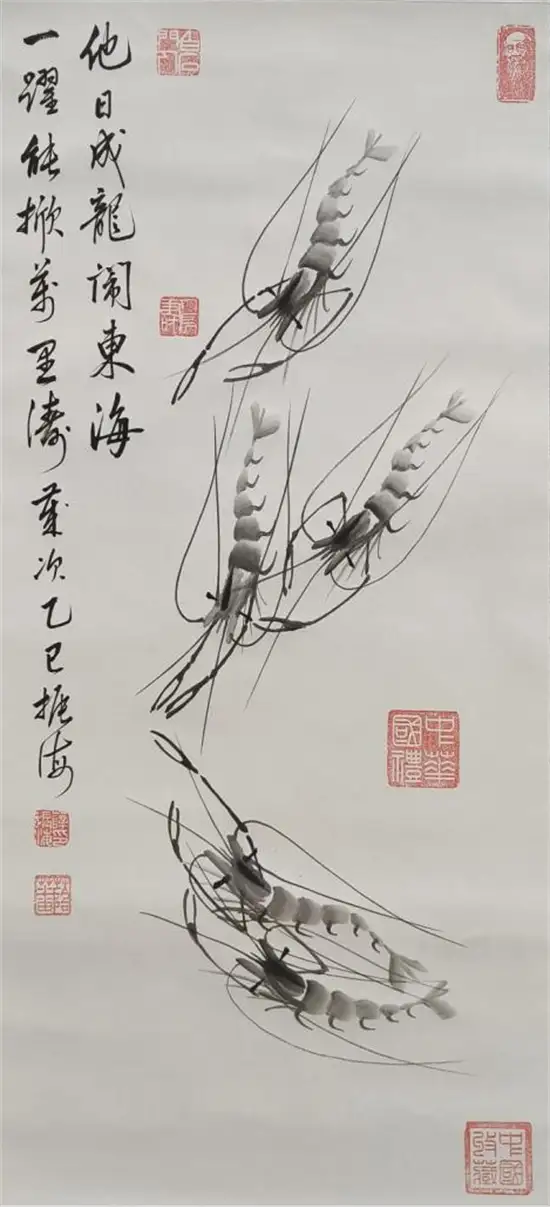 他日成龍鬧東海
一躍能掀萬里濤 歲次乙巳振海
中華國禮
中國收藏